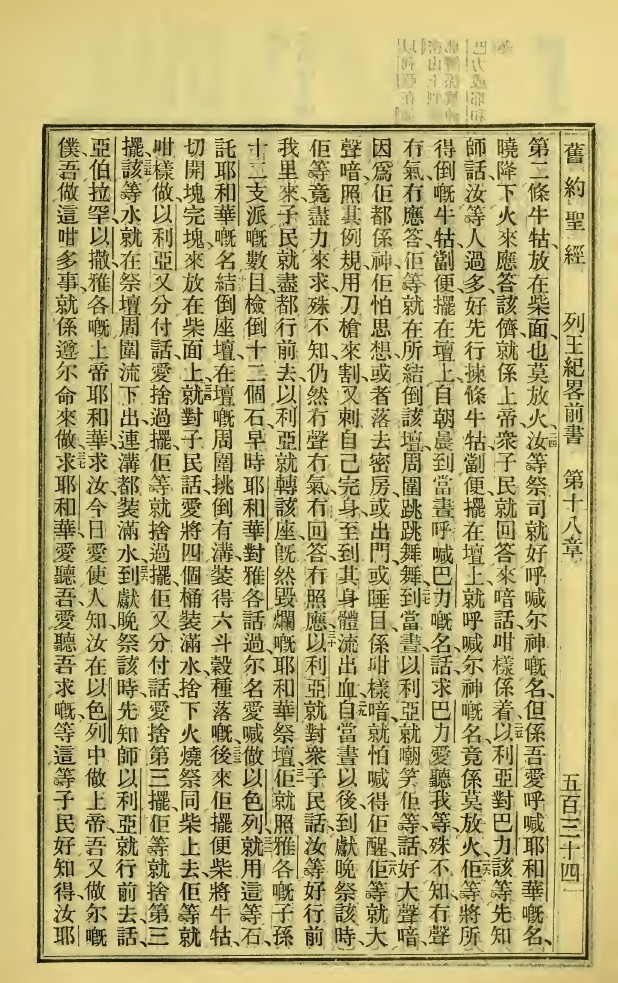 舊約聖經 列王紀畧前書 第十八章 五百三十四
第二條牛牯、放在柴面、也莫放火、二四汝等祭司就好呼喊尔神嘅名、但係吾愛呼喊耶和華嘅名、
曉降下火來應答該儕就係上帝、衆子民就回答來喑話、咁樣係着、二五以利亞對巴力該等先知
師話、汝等人過多、好先行揀條牛牯劏便擺在壇上、就呼喊尔神嘅名、竟係莫放火、二六佢等將所
得倒嘅牛牯、劏便擺在壇上、自朝晨到當晝、呼喊巴力嘅名、話求巴力愛聽我等、殊不知冇聲
冇氣冇應答、佢等就在所結倒該壇周圍跳跳舞舞、二七到當晝以利亞就嘲笑佢等、話好大聲喑、
因爲佢都係神、佢怕思想、或者落去密房、或出門、或睡目、係咁樣喑就怕喊得佢醒、二八佢等就大
聲喑、照其例規用刀槍來割又刺自己完身、至到其身體流出血、二九自當晝以後到獻晚祭該時、
佢等竟盡力來求、殊不知仍然冇聲冇氣冇回答冇照應、三十以利亞就對衆子民話、汝等好行前
我里來、子民就盡都行前去、以利亞就轉該座旣然毀爛嘅耶和華祭壇、三一佢就照雅各嘅子孫
十二支派嘅數目、檢倒十二個石、早時耶和華對雅各話過、尔名愛喊做以色列、就用這等石、
託耶和華嘅名、結倒座壇、在壇嘅周圍、挑倒有溝、裝得六斗穀種落嘅、後來佢擺便柴、將牛牯、
切開塊完塊來放在柴面上、就對子民話、愛將四個桶裝滿水、捨下火燒祭同柴上去、佢等就
咁樣做、以利亞又分付話、愛捨過擺、佢等就捨過擺、佢又分付話、愛捨第三擺、佢等就捨第三
擺、三五該等水就在祭壇周圍流下出、連溝都裝滿水、三六到獻晚祭該時、先知師以利亞就行前去話、
亞伯拉罕以撒雅各嘅上帝耶和華、求汝今日愛使人知汝在以色列中做上帝、吾又做尔嘅
僕、吾做這咁多事、就係遵尔命來做、三七求耶和華愛聽吾、愛聽吾求嘅、等這等子民好知得、汝耶